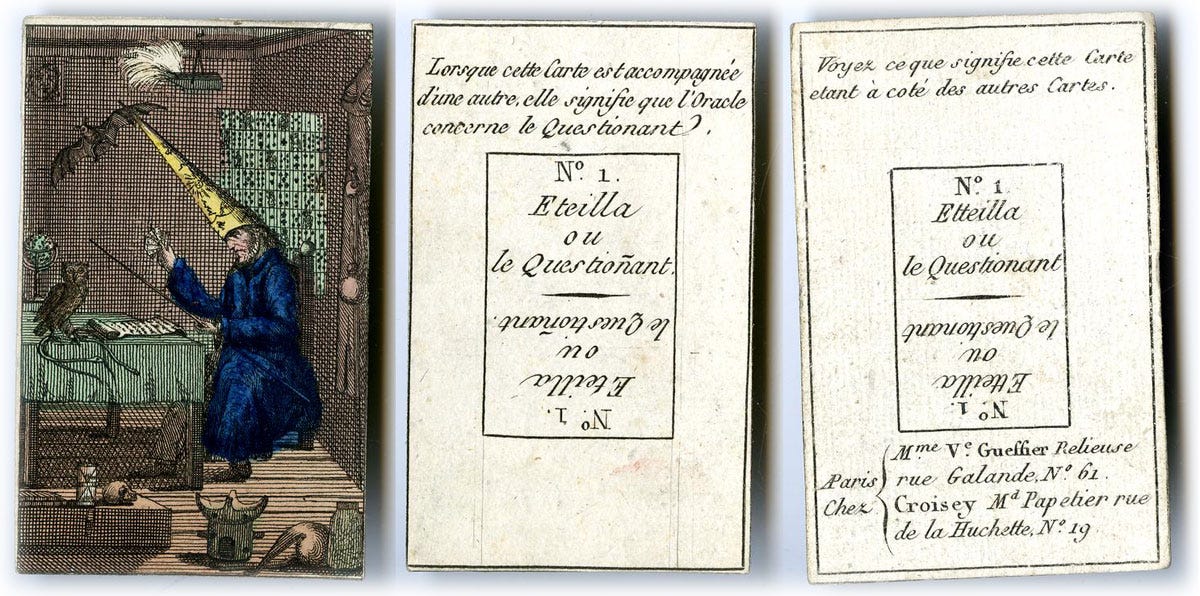 Lorsque cette Carte est accompagnée
d'une autre, elle signifie que l'Oracle
concerne le Questionant.
Nº. 1.
Eteilla
ou
le Questioñant.
le Questioñant.
ou
Eteilla
Nº. 1.
Voyez ce que signifie cette Carte
etant à coté des autres Cartes.
Nº. 1
Etteilla
ou
le Questionant
le Questionant
ou
Etteilla
Nº. 1.
Paris
Chez
Mme Ve. Gueffier Relieuse
rue Galande, Nº 61.
Croisey Md Papetier rue
de la Huchette, Nº 19.